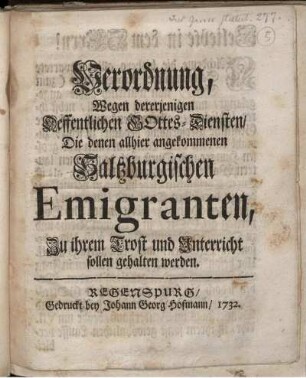 Verordnung,
Wegen dererjenigen
Oeffentlichen GOttes-Diensten/
Die denen allhier angekommenen
Saltzburgischen
Emigranten,
Zu ihrem Trost und Unterricht
sollen gehalten werden.
REGENSPURG/
Gedruckt bey Johann Georg Hofmann/ 1732.